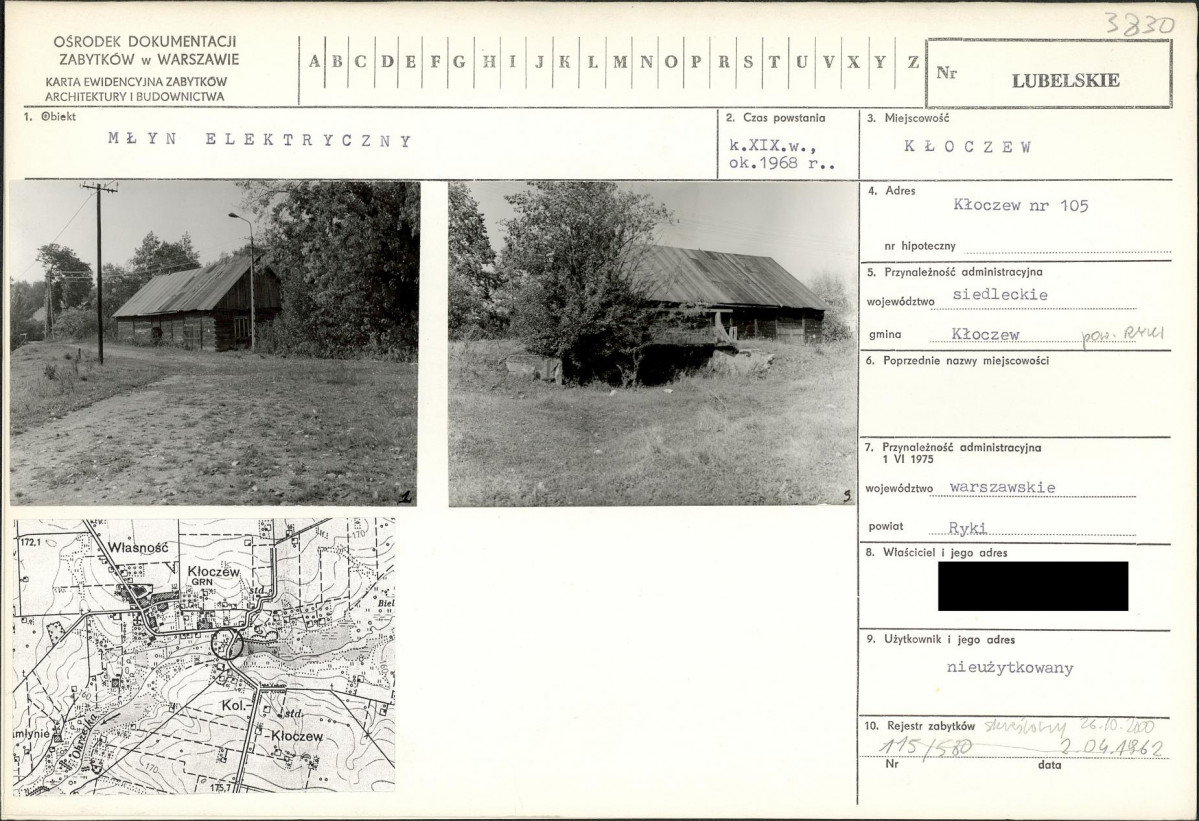 3830
OŚRODEK DOKUMENTACJI
ZABYTKÓW w WARSZAWIE
KARTA EWIDENCYJNA ZABYTKÓW
ARCHITEKTURY I BUDOWNICTWA
A B C D E F G H I J K L M N O P R S T U V X Y Z
Nr
LUBELSKIE
1. Obiekt
MŁYN ELEKTRYCZNY
2. Czas powstania
k.XIX.w.,
ok.1968 r..
3. Miejscowość
KŁOCZEW
4. Adres
Kłoczew nr 105
nr hipoteczny
5. Przynależność administracyjna
województwo siedleckie
gmina Kłoczew pow. RYKI
6. Poprzednie nazwy miejscowości
7. Przynależność administracyjna
1 VI 1975
województwo warszawskie
powiat Ryki
8. Właściciel i jego adres
9. Użytkownik i jego adres
nieużytkowany
10. Rejestr zabytków skreślony 26.10.2000
115/580 2.04.1962
Nr data
1
3
172,1
Własność
Kłoczew
GRN
std.
Biel
170
Kol.-
std.
-Kłoczew
młynie
Okrzejka
170
175,7